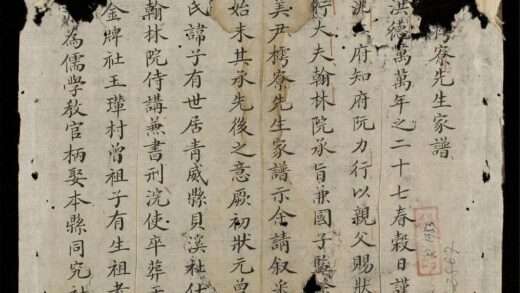 樗寮先生家譜
洪德萬萬年之二十七春穀日謹
洮府知府阮力行以親父賜狀
行大夫翰林院承旨兼國子監
美尹樗寮先生家譜示余請叙
始末其承先後之意厥初狀元曾
民諱子有世居青威縣貝溪社仕
翰林院侍講兼書刑浣使卒葬
金牌社玉瓘村曾祖子有生祖考
為儒學教官柄娶本縣同究社